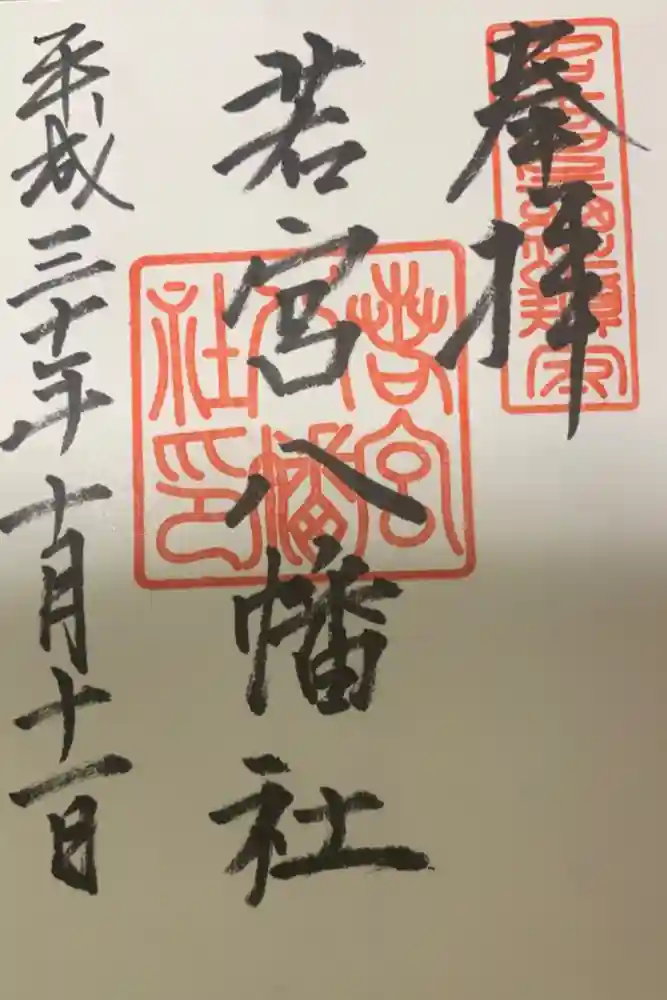 奉拝
若宮八幡社
平成三十年十月十一日
若宮八幡社印